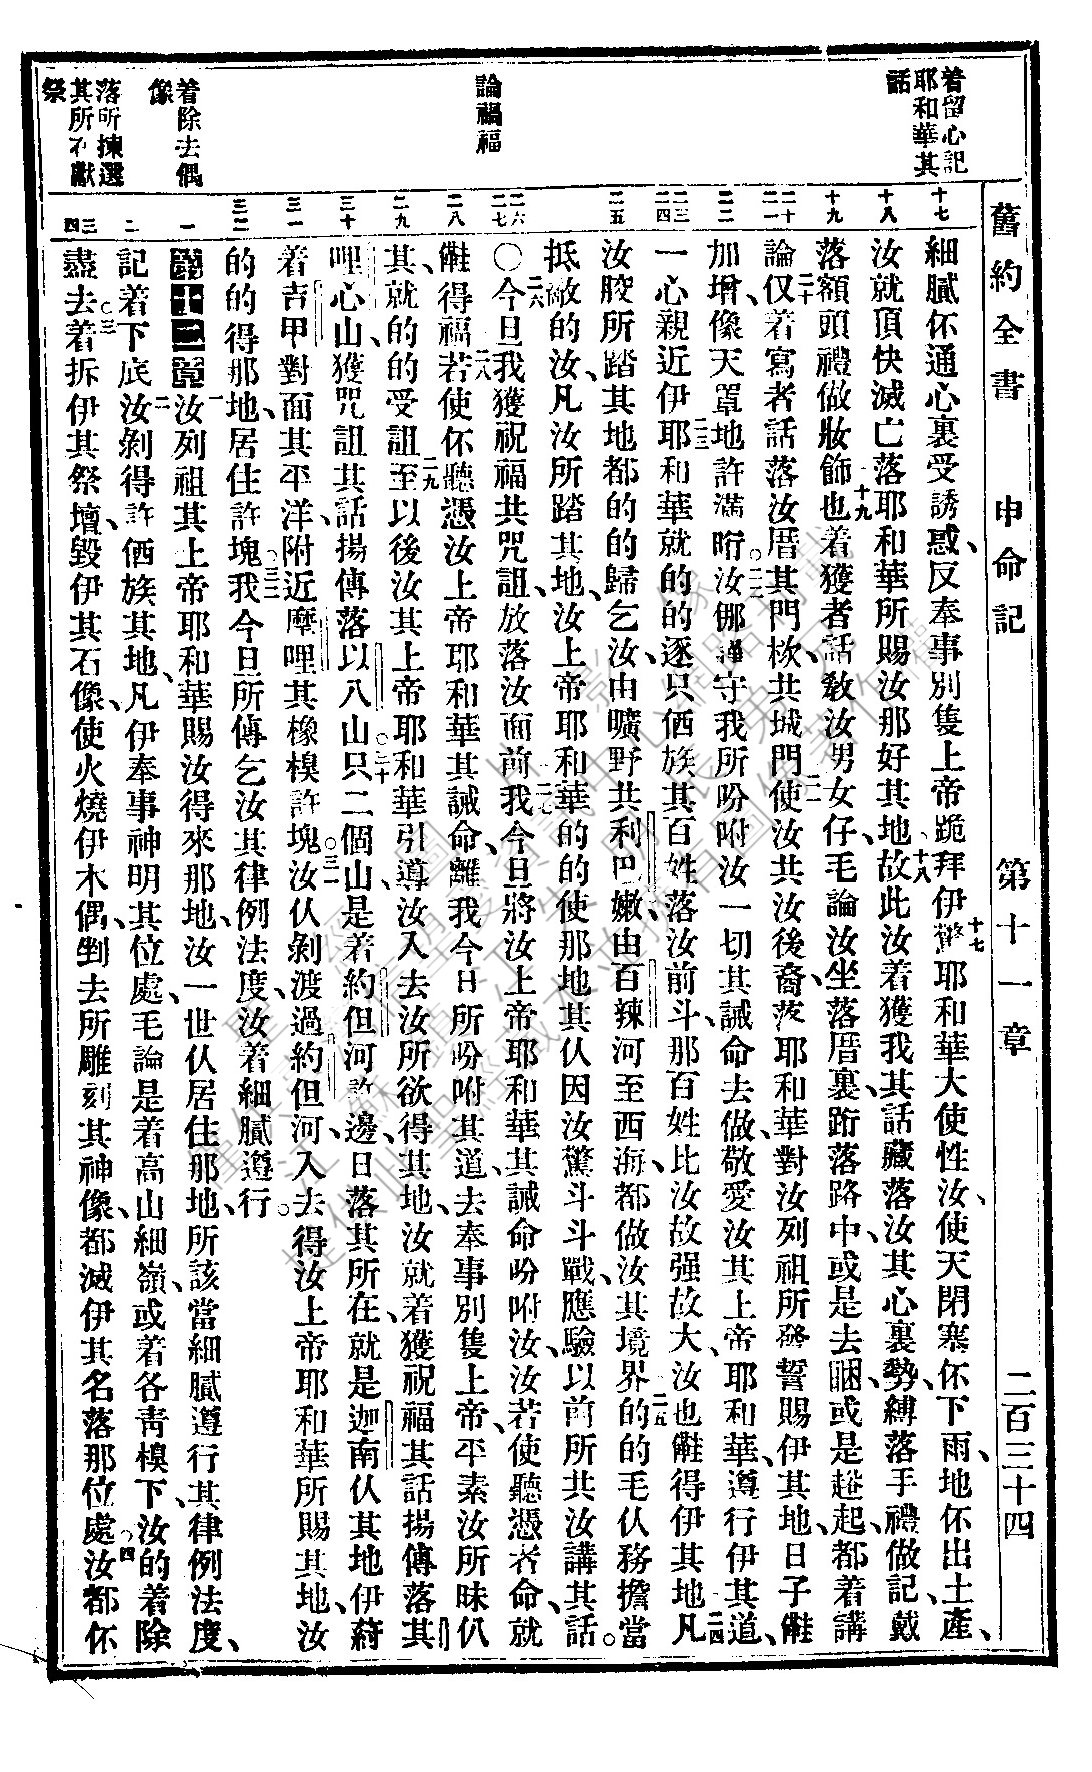 舊約全書　申命記　第十一章　二百三十四
着留心記耶和華其話
論禍福
着除去偶像
落所揀選其所在獻祭
十七 十八 十九 二十 二一 二二 二三 二四 二五 二六 二七 二八 二九 三十 三一 三二 一 二 三 四
細膩伓通心裏受誘惑、反奉事別隻上帝跪拜伊十七驚耶和華大使性汝、使天閉塞伓下雨、地伓出土產、
汝就頂快滅亡落耶和華所賜汝那好其地。十八故此汝着獲我其話藏落汝其心裏、勢縛落手禮做記、戴
落額頭禮做妝飾也十九着獲者話教汝男女仔毛論汝坐落厝裏、跔落路中、或是去睏、或是趒起、都着講
論二十仅着寫者話落汝厝其門杴、共城門二一使汝共汝後裔、落耶和華對汝列祖所發誓賜伊其地、日子㒰
加增、像天罩地許滿䀪。二二汝𠆧謹守我所吩咐汝一切其誡命去做、敬愛汝其上帝耶和華、遵行伊其道、
一心親近伊二三耶和華就的的逐只俤族其百姓落汝前斗、那百姓比汝故强故大、汝也㒰得伊其地。二四凡
汝骹所踏其地、都的的歸乞汝、由曠野共利巴嫩、由百辣河至西海、都做汝其境界。二五的的毛仈務擔當
抵敵的汝、凡汝所踏其地、汝上帝耶和華的的使那地其仈因汝驚斗斗戰、應驗以前所共汝講其話。
〇二六今旦我獲祝福共咒詛、放落汝面前二七我今旦將汝上帝耶和華其誡命吩咐汝、汝若使聽憑者命、就
㒰得福、二八若使伓聽憑汝上帝耶和華其誡命、離我今日所吩咐其道、去奉事別隻上帝、平素汝所昧仈
其、就的的受詛。二九至以後汝其上帝耶和華引導汝入去汝所欲得其地、汝就着獲祝福其話揚傳落其
哩心山、獲咒詛其話揚傳落以八山。三十只二個山是着約但河許邊、日落其所在、就是迦南仈其地、伊
着吉甲對面其平洋、附近摩哩其橡模許塊。三一汝仈剝渡過約但河、入去得汝上帝耶和華所賜其地、汝
的的得那地、居住許塊。三二我今旦所傳乞汝其律例法度、汝着細膩遵行。
第十二章　一汝列祖其上帝耶和華賜汝得來那地、汝一世仈居住那地、所該當細膩遵行其律例法度、
記着下底。二汝剝得許俤族其地、凡伊奉事神明其位處、毛論是着高山細嶺、或着各靑模下、汝的着除
盡去。三着拆伊其祭壇、毀伊其石像、使火燒伊木偶、剉去所雕刻其神像、都滅伊其名落那位處。四汝都伓